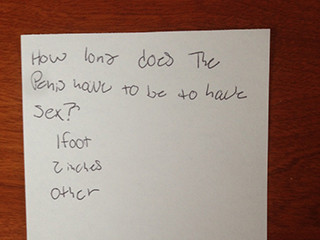 How long does The
Penis have to be to have
sex?
1foot
2 inches
other